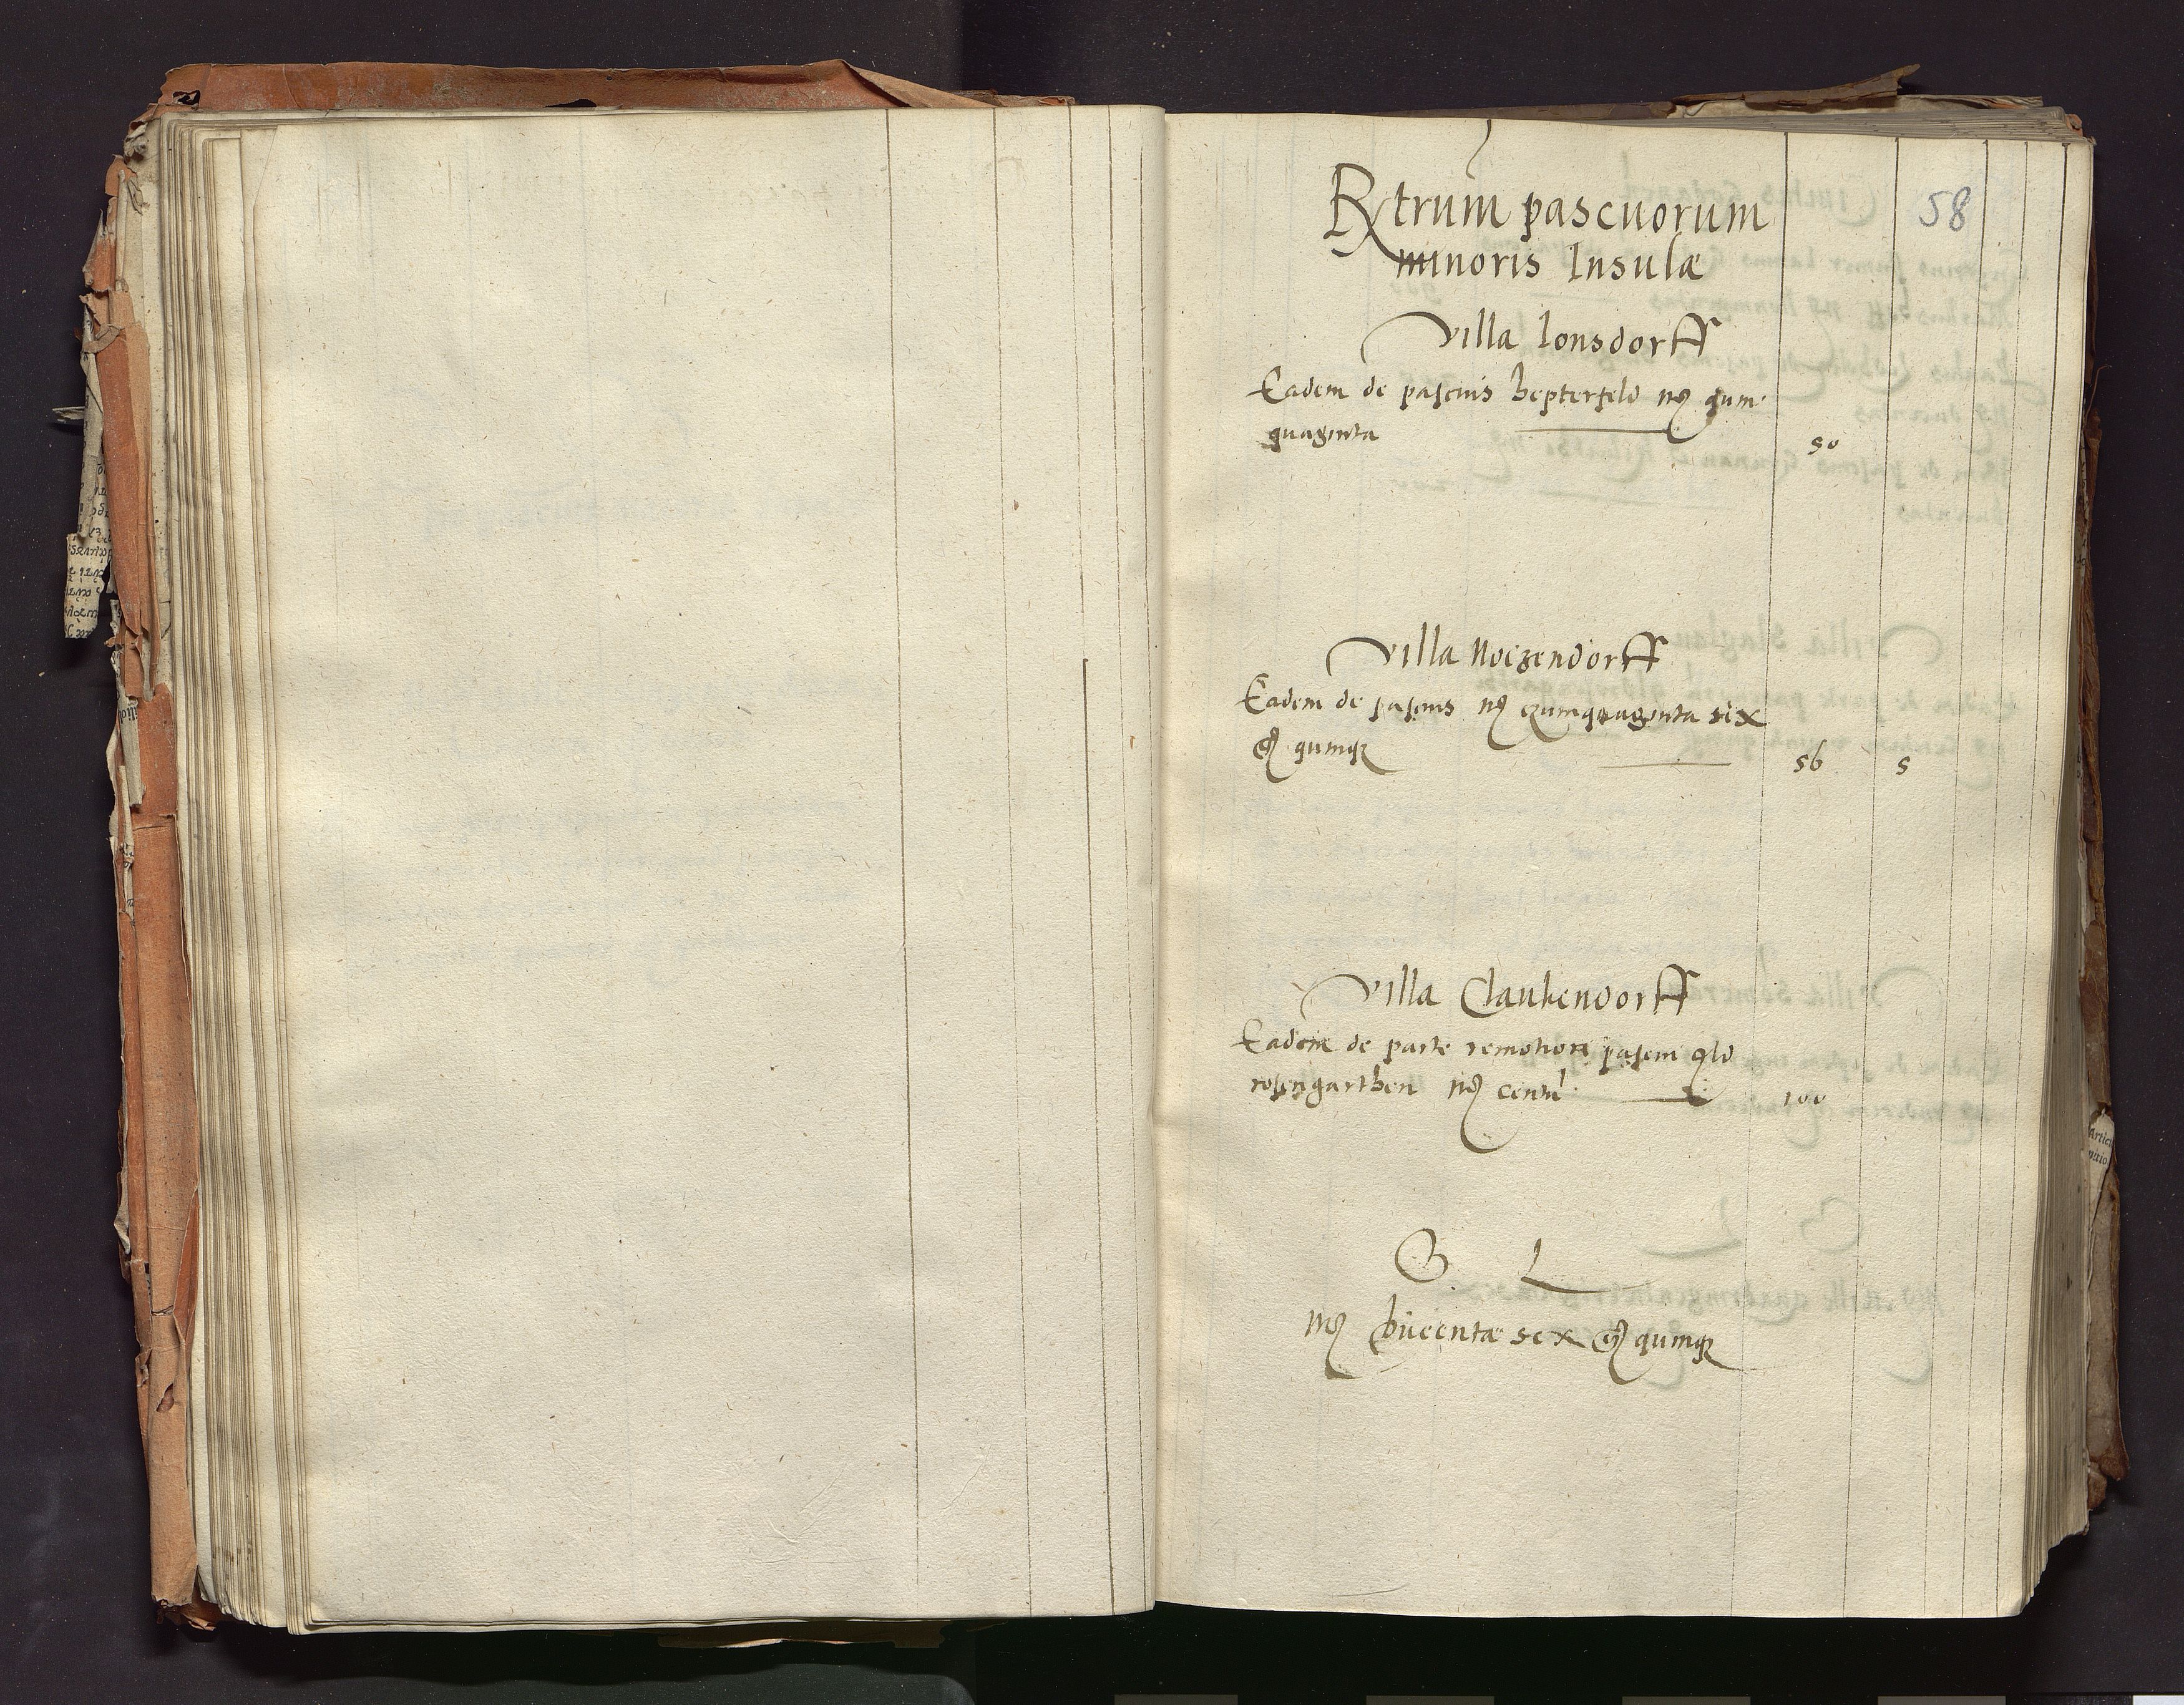 58
Rx trum pascuorum
minoris Insulæ
Villa Lonsdorff
Eadem de pascuis hepterfeld mr quin
quaginta 50
Villa Noezendorff
Eadem de pascuis mr quinquaginta sex
gr quinque 56 5
Villa Claukendorff
Eadem de parte remotiori pascui
rosengarthen mr centu 100
S L
mr bucentæ sex gr quinque